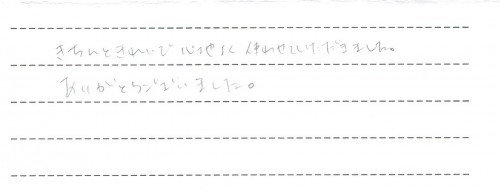 きちんときれいで 心地よく 使わせていただきました。
ありがとうございました。